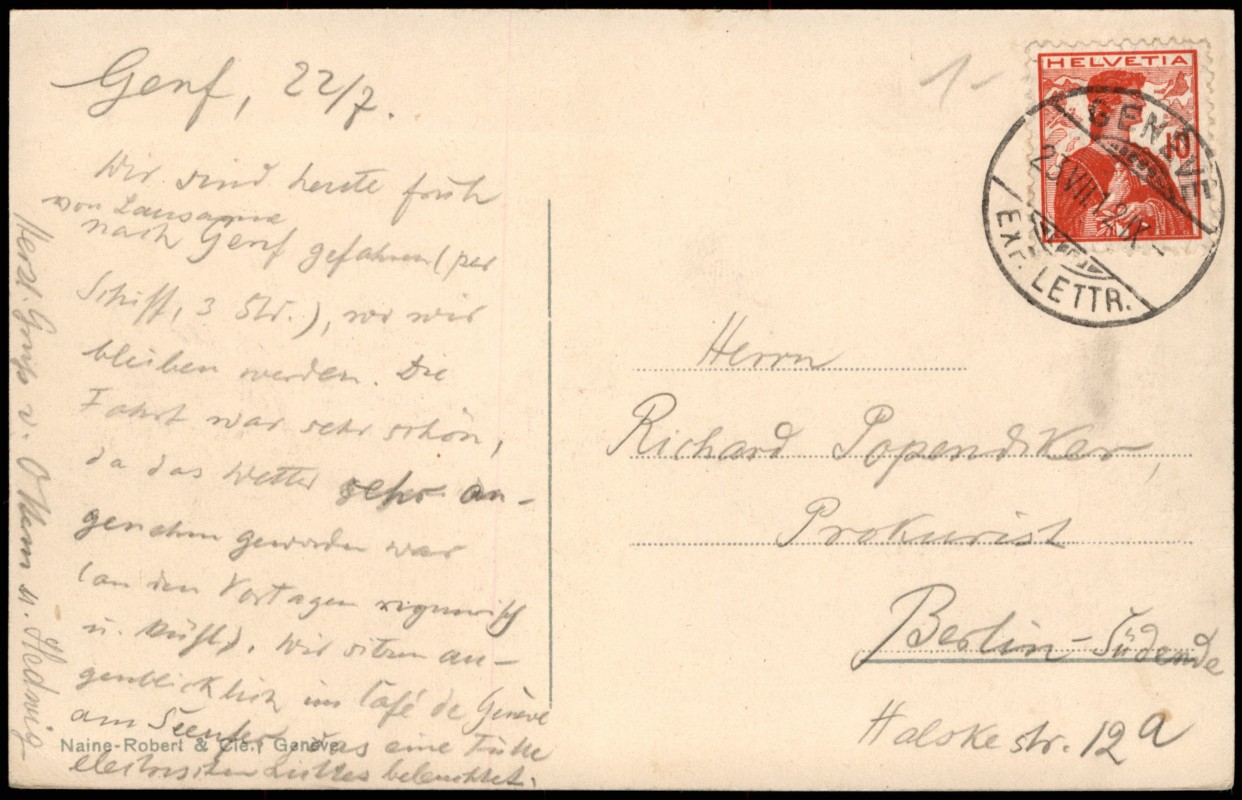 Genf, 22/7.
Wir sind heute früh
von Lausanne
nach Genf gefahren (per
Schiff, 3 Std.), wo wir
bleiben werden. Die
Fahrt war sehr schön,
da das Wetter sehr an-
genehm geworden war
(an den Vortagen regnerisch
u. kühl). Wir sitzen au-
genblicklich im Café de Genève
am Seeufer, das eine Fülle
elektrischen Lichtes beleuchtet.
Herzl. Gruß v. u. Hedwig
Naine-Robert & Cie., Genève
1-
HELVETIA
10
GENÈVE
23.VII.12.IX-
EXP. LETTR.
Herrn
Richard Popendiker,
Prokurist
Berlin-Südende
Halskestr. 12a